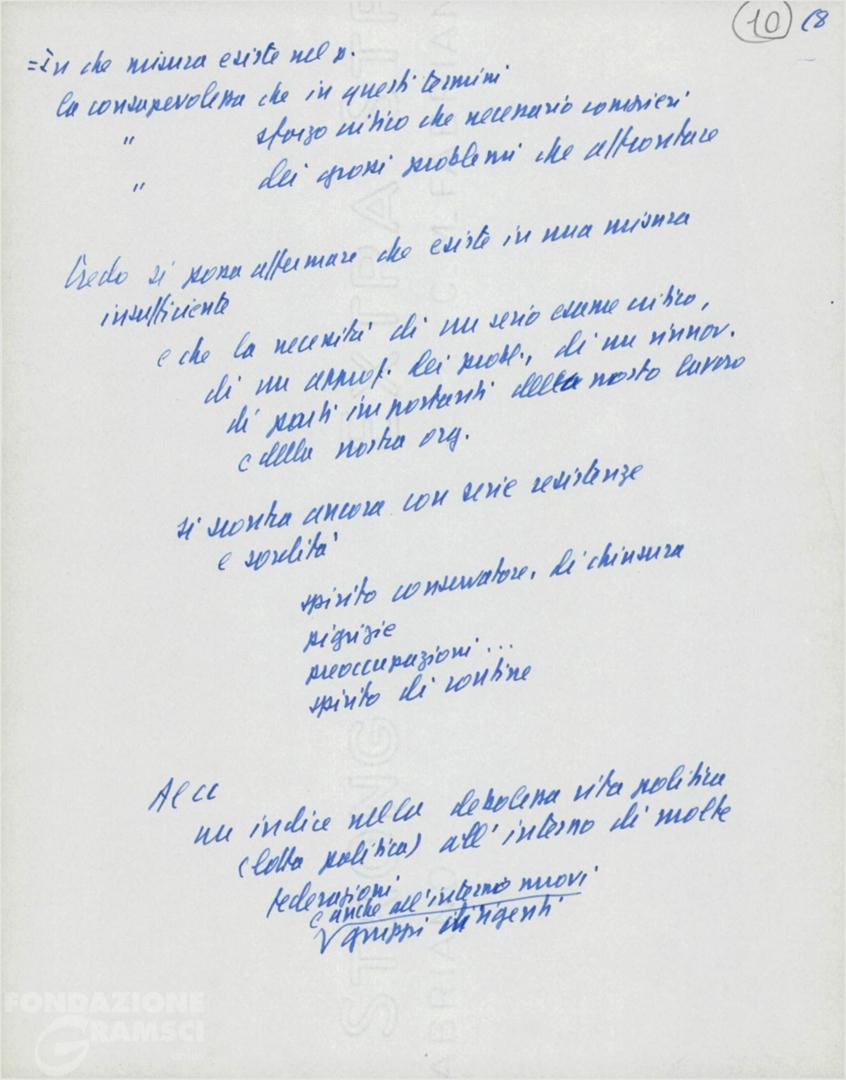 10 (8
= In che misura esiste nel p.
la consapevolezza che in questi termini
" sforzo critico che necessario
" dei grossi problemi che affrontare
Credo si possa affermare che esiste in una misura
insufficiente
e che la necessità di un serio esame critico,
di un approf. dei probl., di un rinnov.
di parti importanti della nostro lavoro
e della nostra org.
si scontra ancora con serie resistenze
e sordità
spirito conservatore, di chiusura
pigrizie
preoccupazioni ...
spirito di routine
Al CC
un indice nella debolezza vita politica
(lotta politica) all'interno di molte
federazioni
e anche all'interno nuovi
√ gruppi dirigenti
FONDAZIONE
GRAMSCI
STRONG EXTRA STR